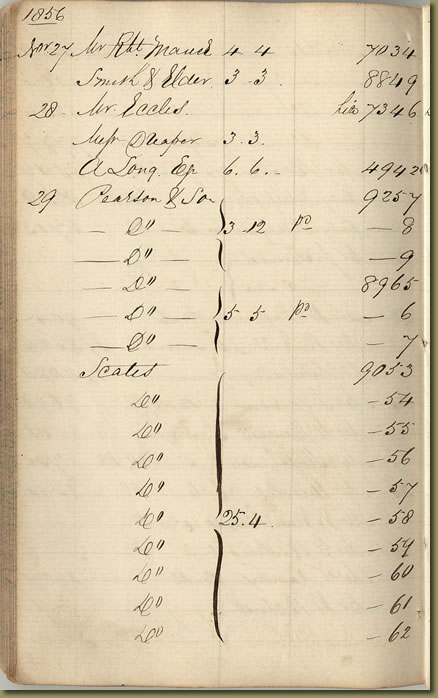 1856
Nov 27 Mr Robt. Maud 4 4 7034
Smith & Elder 3 . 3 8849
28 Mr. Eccles. 7346
Messr 3. 3.
A Long. Eq 6. 6. 4942
29 Pearson & Son 9257
— Do — 3 12 pd — 8
— Do — — 9
— Do — 8965
— Do — 5 5 pd — 6
— Do — — 7
Scates 9053
Do — 54
Do — 55
Do — 56
Do — 57
Do 25. 4. — 58
Do — 59
Do — 60
Do — 61
Do — 62